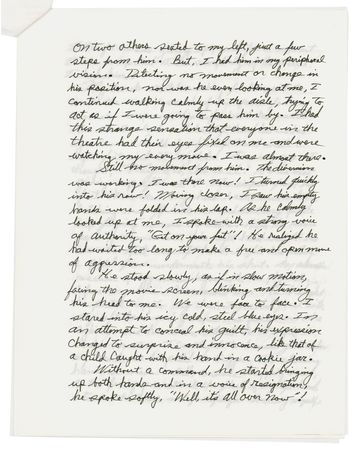 on two others seated to my left, just a few
steps from him. But, I had him in my peripheral
vision. Detecting no movement or change in
his position, nor was he even looking at me, I
continued walking calmly up the aisle, trying to
act as if I were going to pass him by. I had
this strange sensation that everyone in the
theatre had their eyes fixed on me and were
watching my every move. I was almost there.
Still no movement from him. The diversion
was working. I was there now! I turned quickly
into his row! Moving closer, I saw his empty
hands were folded in his lap. As he calmly
looked up at me, I spoke with a strong voice
of authority, "Get on your feet"! He realized he
had waited too long to make a free and open move
of aggression.
He stood slowly, as if in slow motion,
facing the movie screen, blinking and turning
his head to me. We were face to face. I
stared into his icy cold, steel blue eyes. In
an attempt to conceal his guilt, his expression
changed to surprise and innocence, like that of
a child caught with his hand in a cookie jar.
Without a command, he started bringing
up both hands and in a voice of resignation,
he spoke softly, "Well, it's all over now"!